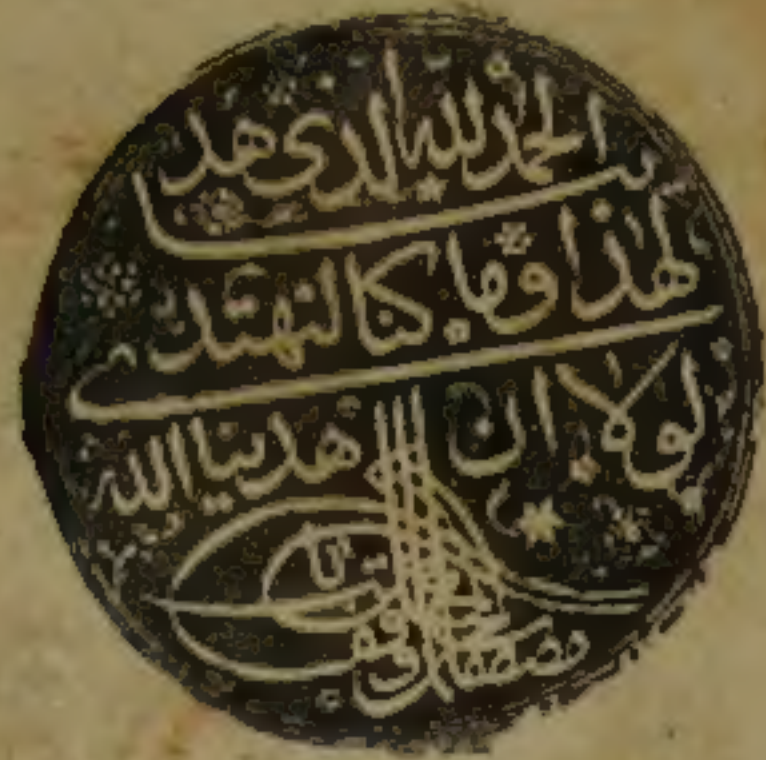 الحمد لله الذى هدينا
لهذا وما كنا لنهتدى
لولا ان هدينا الله